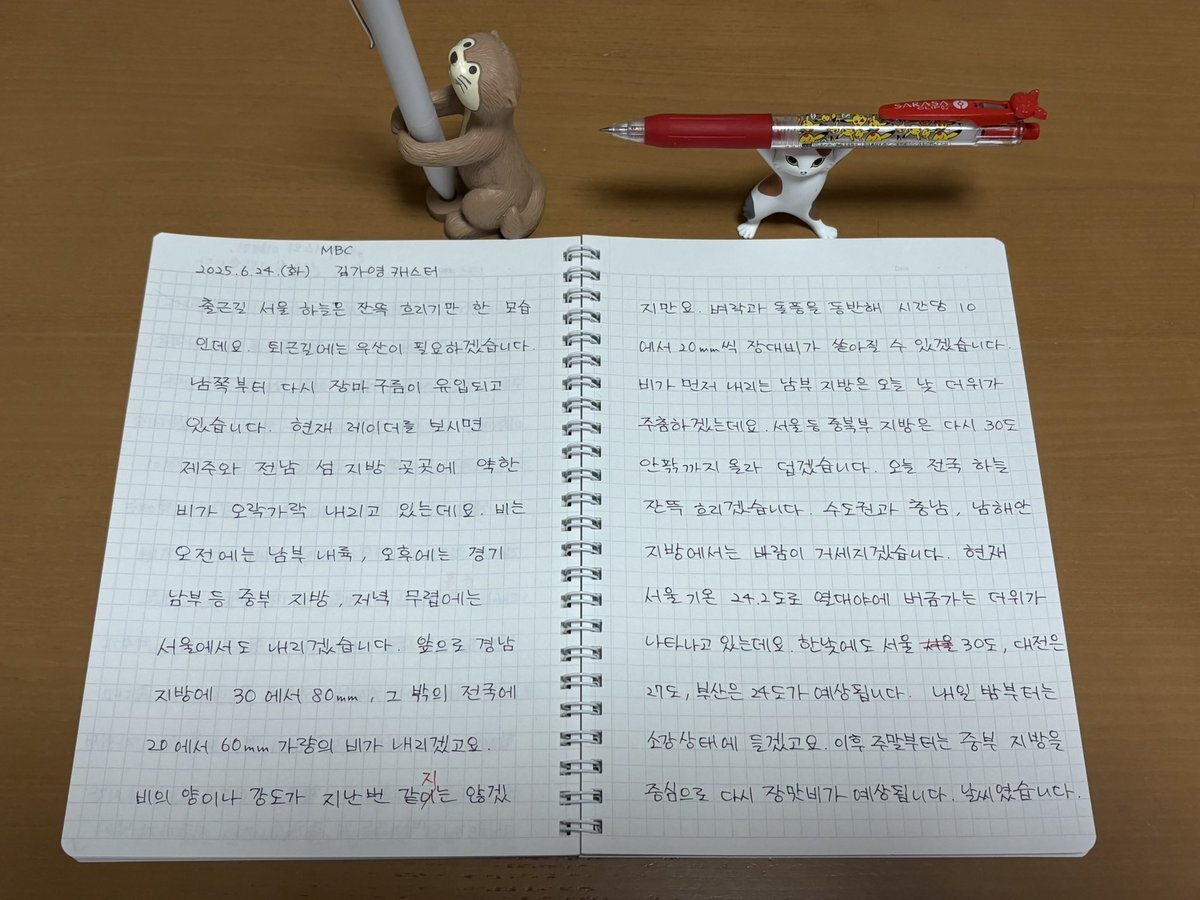 SARASA
MBC
2025.6.24.(화) 김가영 캐스터
출근길 서울 하늘은 잔뜩 흐리기만 한 모습
인데요. 퇴근길에는 우산이 필요하겠습니다.
남쪽부터 다시 장마구름이 유입되고
있습니다. 현재 레이더를 보시면
제주와 전남 섬 지방 곳곳에 약한
비가 오락가락 내리고 있는데요. 비는
오전에는 남부 내륙, 오후에는 경기
남부 등 중부 지방, 저녁 무렵에는
서울에서도 내리겠습니다. 앞으로 경남
지방에 30에서 80mm, 그 밖의 전국에
20에서 60mm 가량의 비가 내리겠고요.
비의 양이나 강도가 지난번 같지는 않겠
지만요. 벼락과 돌풍을 동반해 시간당 10
에서 20mm씩 장대비가 쏟아질 수 있겠습니다.
비가 먼저 내리는 남부 지방은 오늘 낮 더위가
주춤하겠는데요. 서울 등 중북부 지방은 다시 30도
안팎까지 올라 덥겠습니다. 오늘 전국 하늘
잔뜩 흐리겠습니다. 수도권과 충남, 남해안
지방에서는 바람이 거세지겠습니다. 현재
서울 기온 24.2도로 열대야에 버금가는 더위가
나타나고 있는데요. 한낮에도 서울 서울 30도, 대전은
27도, 부산은 24도가 예상됩니다. 내일 밤부터는
소강상태에 들겠고요. 이후 주말부터는 중부 지방을
중심으로 다시 장맛비가 예상됩니다. 날씨였습니다.